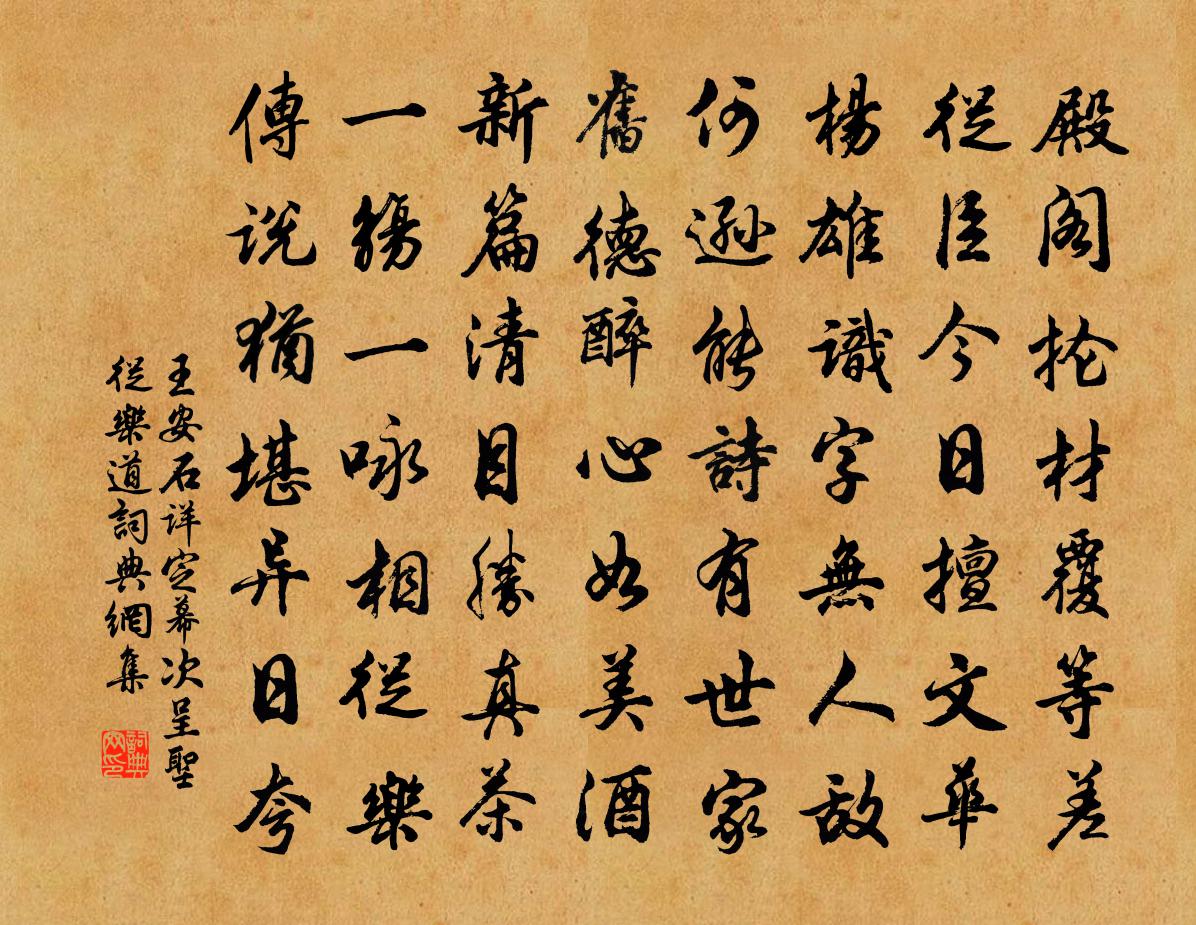 殿閣掄材覆等差
從臣今日擅文華
楊雄識字無人敵
何遜能詩有世家
舊德醉心如美酒
新篇清目勝真茶
一觴一咏相從樂
傳説猶堪异日夸
王安石详定幕次呈聖
從樂道詞典網集
詞典網印